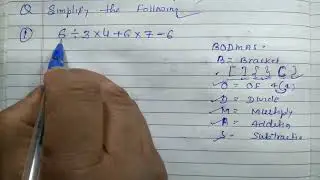 Q Simplify the Following
① 6 ÷ 3 × 4 + 6 × 7 - 6
BODMAS:
B = Bracket
O = OF
D = Divide
M = Multiply
A = Addition
S = Subtraction